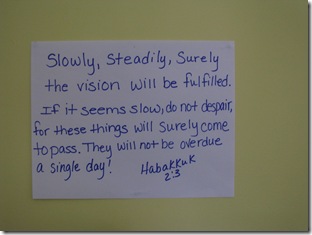 Slowly, Steadily, Surely
the vision will be fulfilled.
If it seems slow, do not despair,
for these things will surely come
to pass. They will not be overdue
a single day!
Habakkuk
2:3